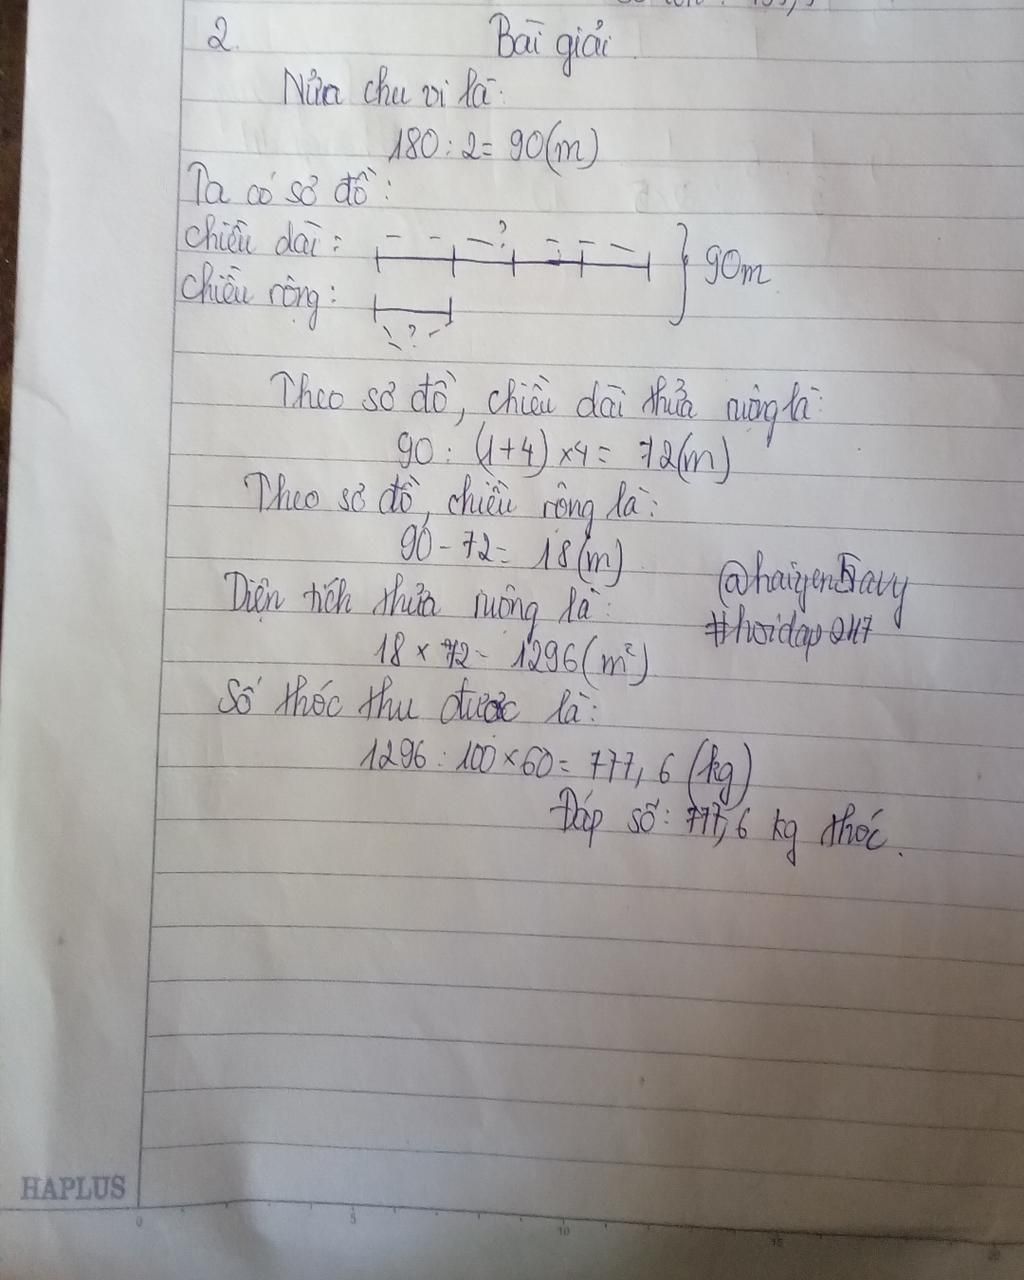 2.
Bài giải
Nửa chu vi là:
180 : 2 = 90(m)
Ta có sơ đồ:
chiều dài: ?
90m
chiều rộng:
?
Theo sơ đồ, chiều dài thửa ruộng là:
90 : (1+4) × 4 = 72(m)
Theo sơ đồ, chiều rộng là:
90 - 72 = 18(m)
Diện tích thửa ruộng là:
@haiyen5avy
18 × 72 = 1296(m²)
#hoidap247
Số thóc thu được là:
1296 : 100 × 60 = 777,6 (kg)
Đáp số: 777,6 kg thóc.
HAPLUS
0 5 10 15 20